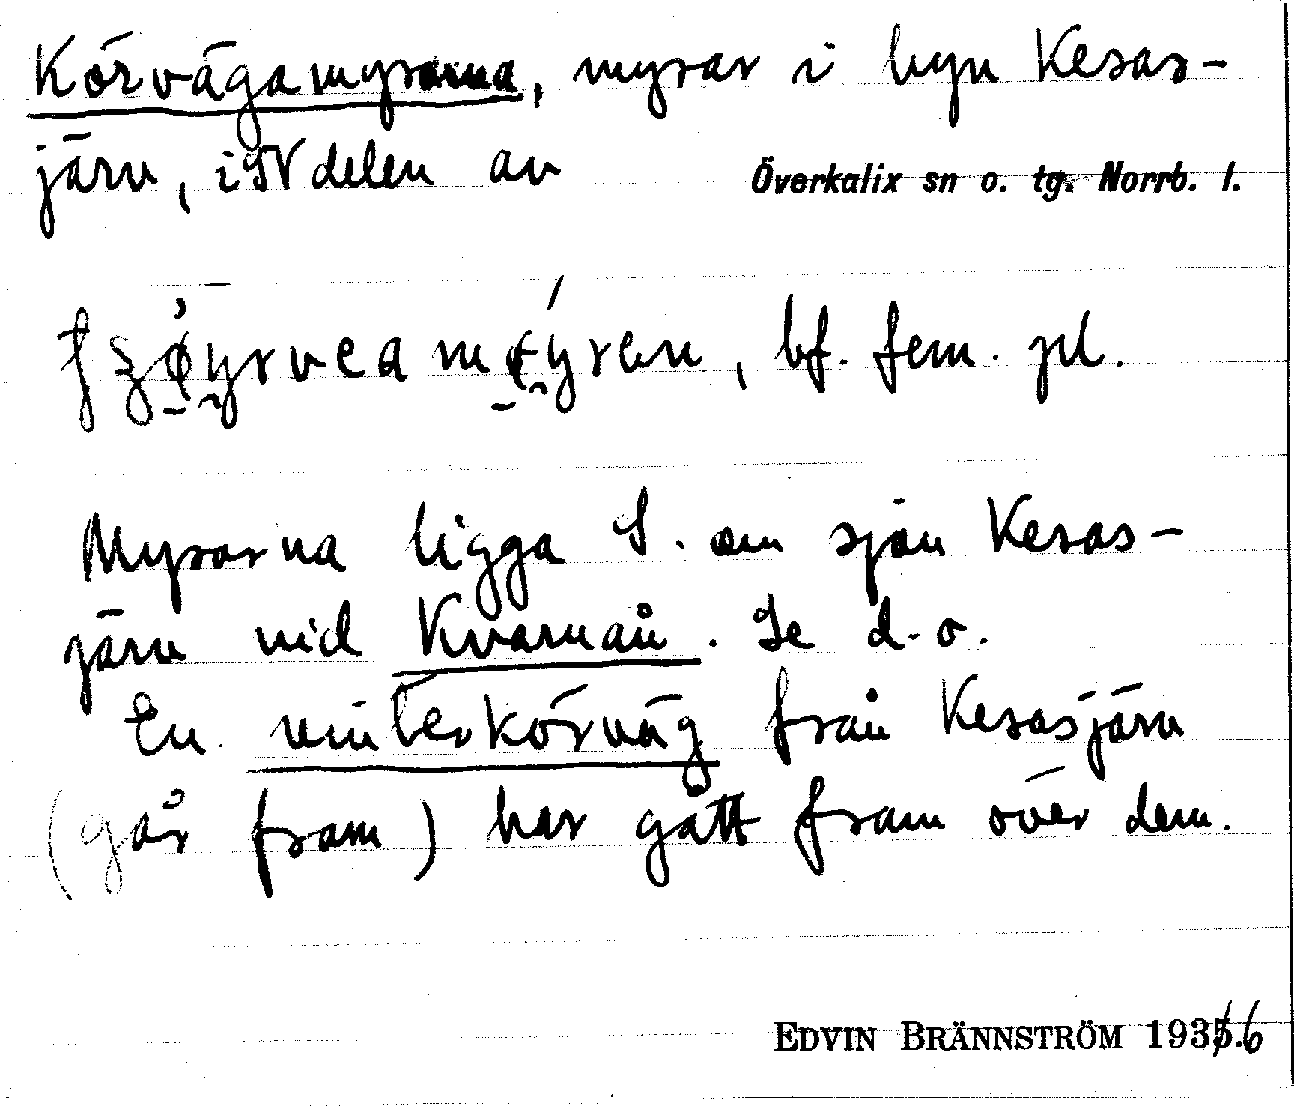 Körvägamyrarna, myrar i byn Kesas-
järv, i SV delen av Överkalix sn o. tg. Norrb. l.
bf. fem. pl.
Myrarna ligga S. om sjön Kesas-
järv vid Kvarnån. Se d. o.
En vinterkörväg från Kesasjärv
(går fram) har gått fram över dem.
EDVIN BRÄNNSTRÖM 1935.6